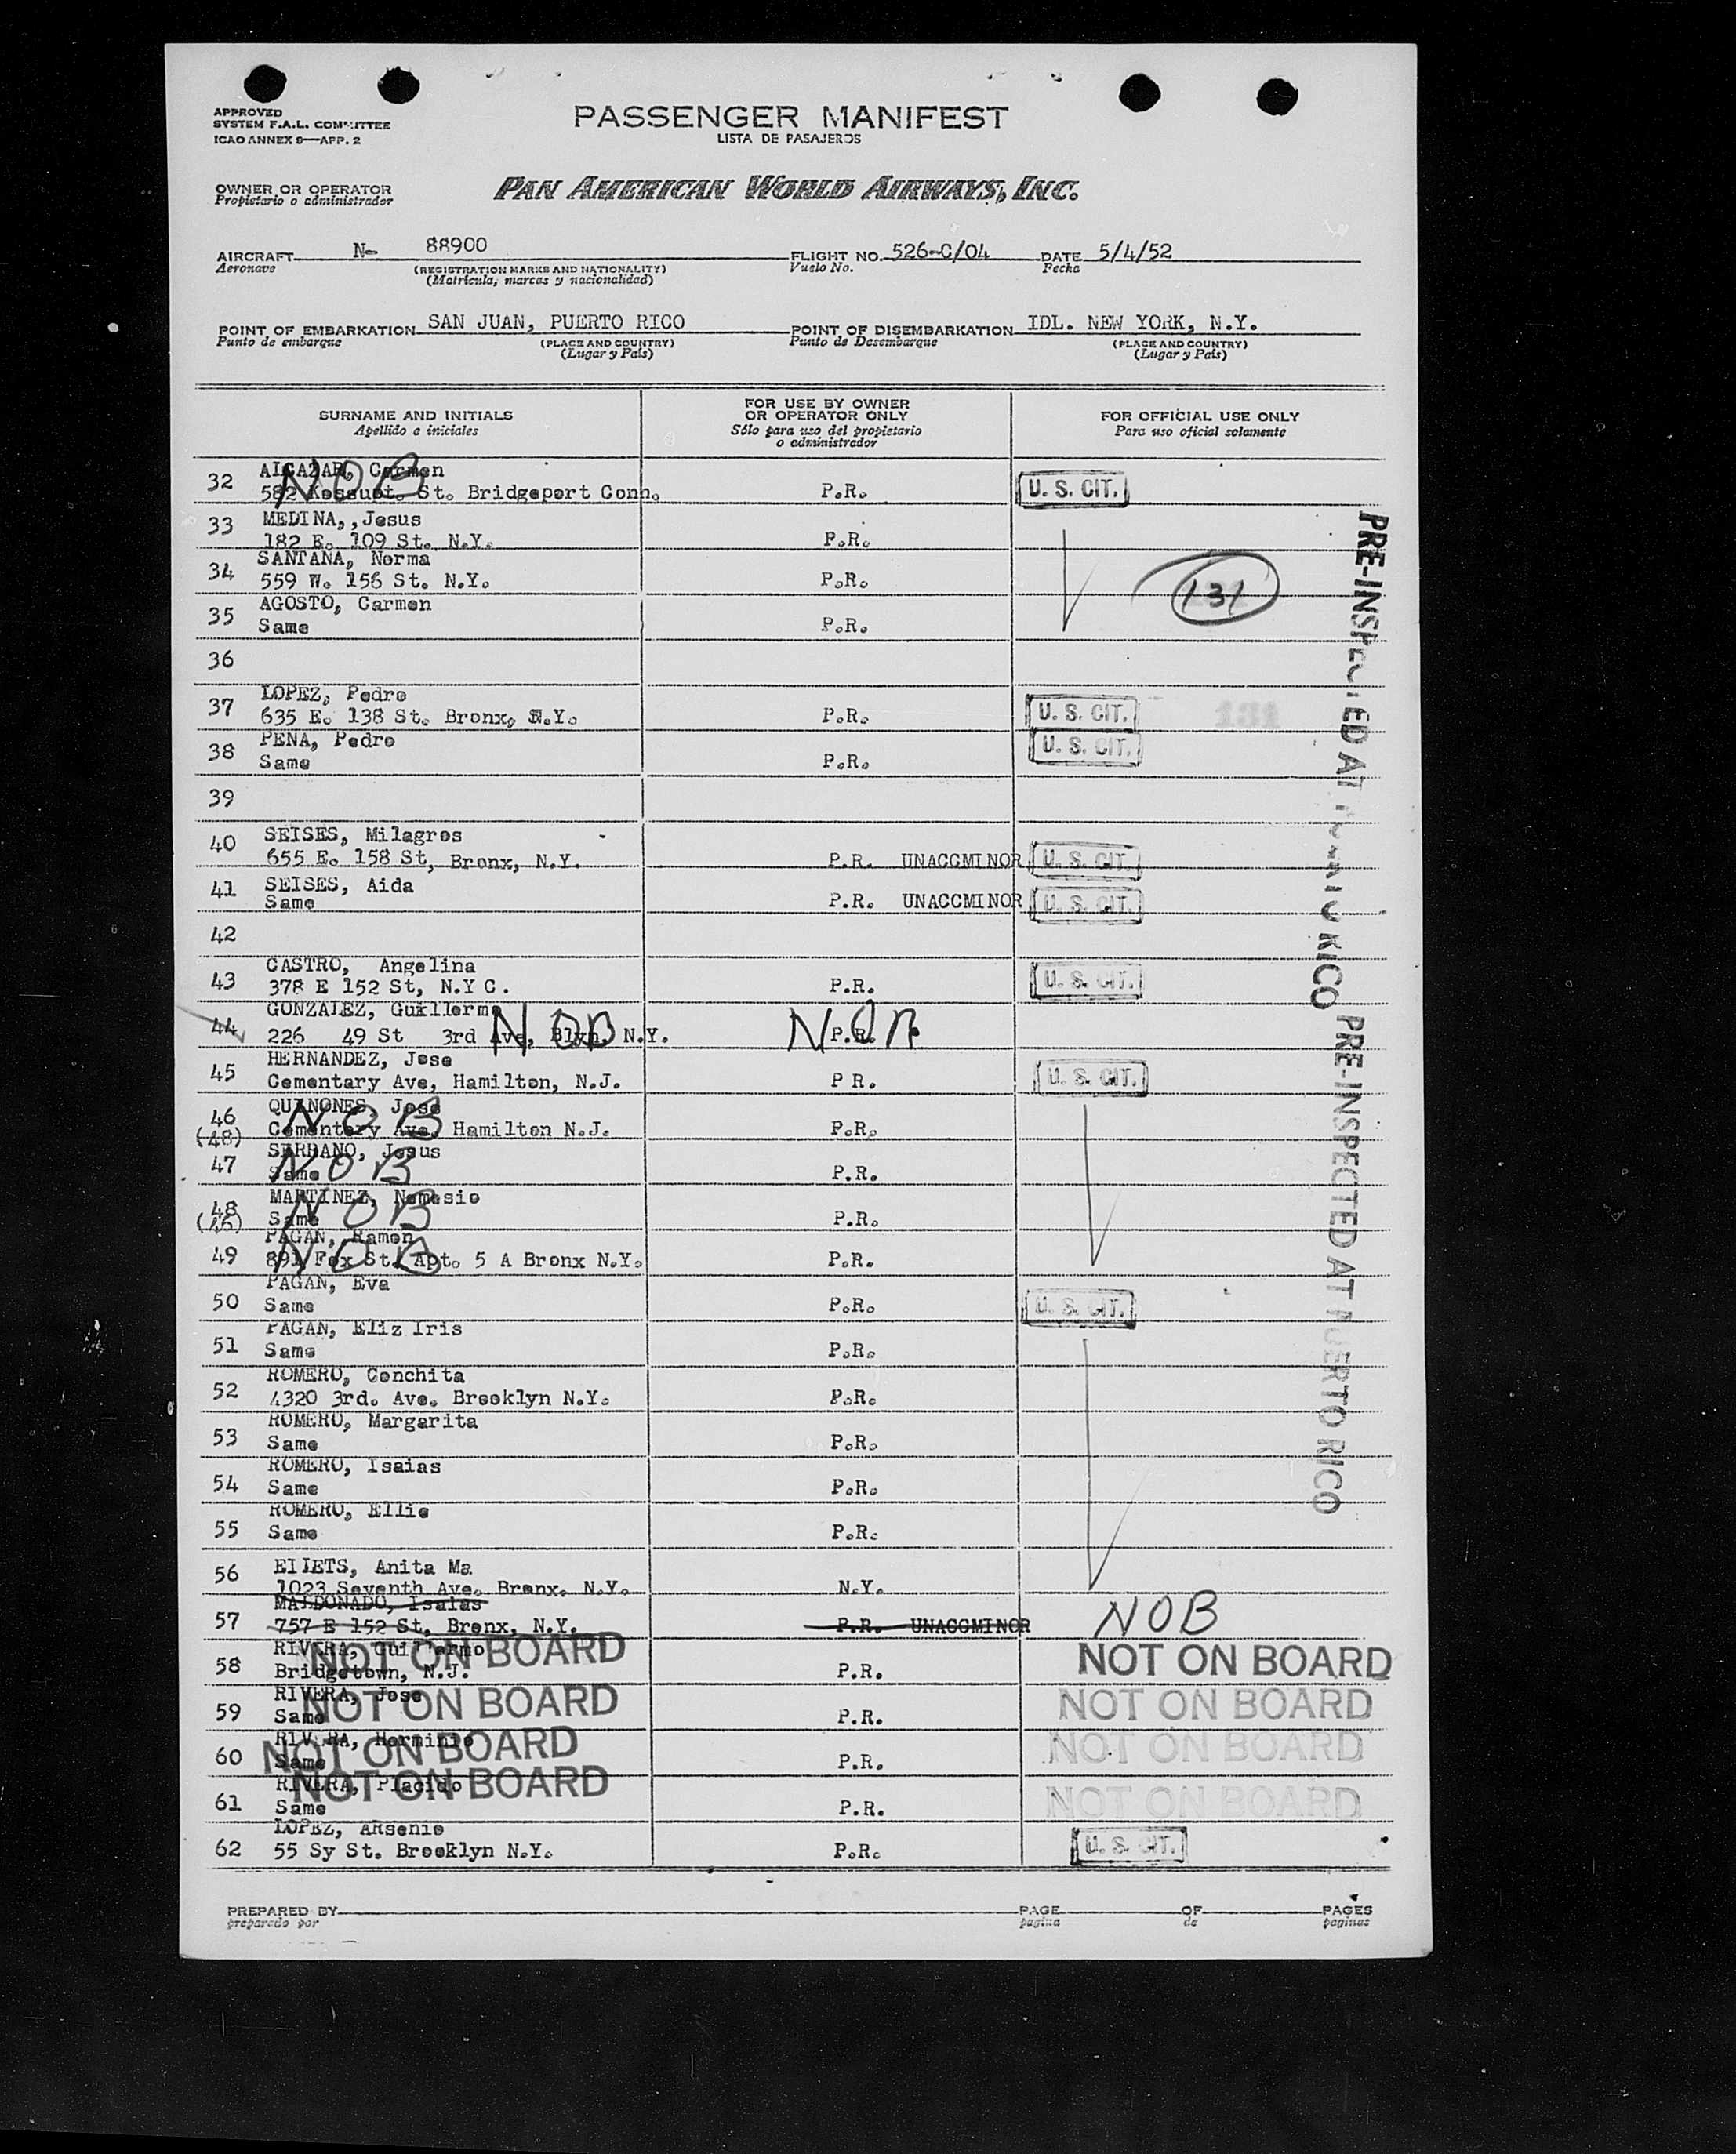 APPROVED
SYSTEM F.A.L. COMMITTEE
ICAO ANNEX 9—APP. 2
PASSENGER MANIFEST
LISTA DE PASAJEROS
OWNER OR OPERATOR
Propietario o administrador
PAN AMERICAN WORLD AIRWAYS, INC.
AIRCRAFT N- 88900 FLIGHT NO. 526-C/04 DATE 5/4/52
Aeronave (REGISTRATION MARKS AND NATIONALITY) Vuelo No. Fecha
(Matrícula, marcas y nacionalidad)
POINT OF EMBARKATION SAN JUAN, PUERTO RICO POINT OF DISEMBARKATION IDL. NEW YORK, N.Y.
Punto de embarque (PLACE AND COUNTRY) Punto de Desembarque (PLACE AND COUNTRY)
(Lugar y País) (Lugar y País)
SURNAME AND INITIALS
Apellido e iniciales
FOR USE BY OWNER
OR OPERATOR ONLY
Sólo para uso del propietario
o administrador
FOR OFFICIAL USE ONLY
Para uso oficial solamente
32 ALCAZAR, Carmen NOB
582 St. Bridgeport Conn. P.R. U. S. CIT.
33 MEDINA,,Jesus
182 E. 109 St. N.Y. P.R.
34 SANTANA, Norma
559 W. 156 St. N.Y. P.R. 131
35 AGOSTO, Carmen
Same P.R.
36
37 LOPEZ, Pedro
635 E. 138 St. Bronx, N.Y. P.R. U. S. CIT. 131
38 PENA, Pedro
Same P.R. U. S. CIT.
39
40 SEISES, Milagros
655 E. 158 St, Bronx, N.Y. P.R. UNACCMINOR U. S. CIT.
41 SEISES, Aida
Same P.R. UNACCMINOR U. S. CIT.
42
43 CASTRO, Angelina
378 E 152 St, N.Y C. P.R. U. S. CIT.
44 GONZALEZ, Guillermo
226 49 St 3rd Ave, Blyn, N.Y. NOB P.R. NOB
45 HERNANDEZ, Jose
Cementary Ave, Hamilton, N.J. P R. U. S. CIT.
46 QUINONES, Jose NOB
(48) Cementery Ave, Hamilton N.J. P.R.
47 SERRANO, Jesus
Same NOB P.R.
48 MARTINEZ, Nemesio
(46) Same NOB P.R.
49 PAGAN, Ramon NOB
891 Fox St. Apt. 5 A Bronx N.Y. P.R.
50 PAGAN, Eva
Same P.R. U. S. CIT.
51 PAGAN, Eliz Iris
Same P.R.
52 ROMERO, Conchita
4320 3rd. Ave. Brooklyn N.Y. P.R.
53 ROMERO, Margarita
Same P.R.
54 ROMERO, Isaias
Same P.R.
55 ROMERO, Ellie
Same P.R.
56 ELIETS, Anita Ma
1023 Seventh Ave. Bronx, N.Y. N.Y.
57 MALDONADO, Isaias
757 E 152 St, Bronx, N.Y. P.R. UNACCMINOR NOB
58 RIVERA, Guillermo NOT ON BOARD
Bridgetown, N.J. P.R. NOT ON BOARD
59 RIVERA, Jose NOT ON BOARD
Same P.R. NOT ON BOARD
60 RIVERA, Herminio NOT ON BOARD
Same P.R. NOT ON BOARD
61 RIVERA, Placido NOT ON BOARD
Same P.R. NOT ON BOARD
62 LOPEZ, Arsenio
55 Sy St. Brooklyn N.Y. P.R. U. S. CIT.
PRE-INSPECTED AT PUERTO RICO
PRE-INSPECTED AT PUERTO RICO
PREPARED BY PAGE OF PAGES
preparado por pagina de paginas